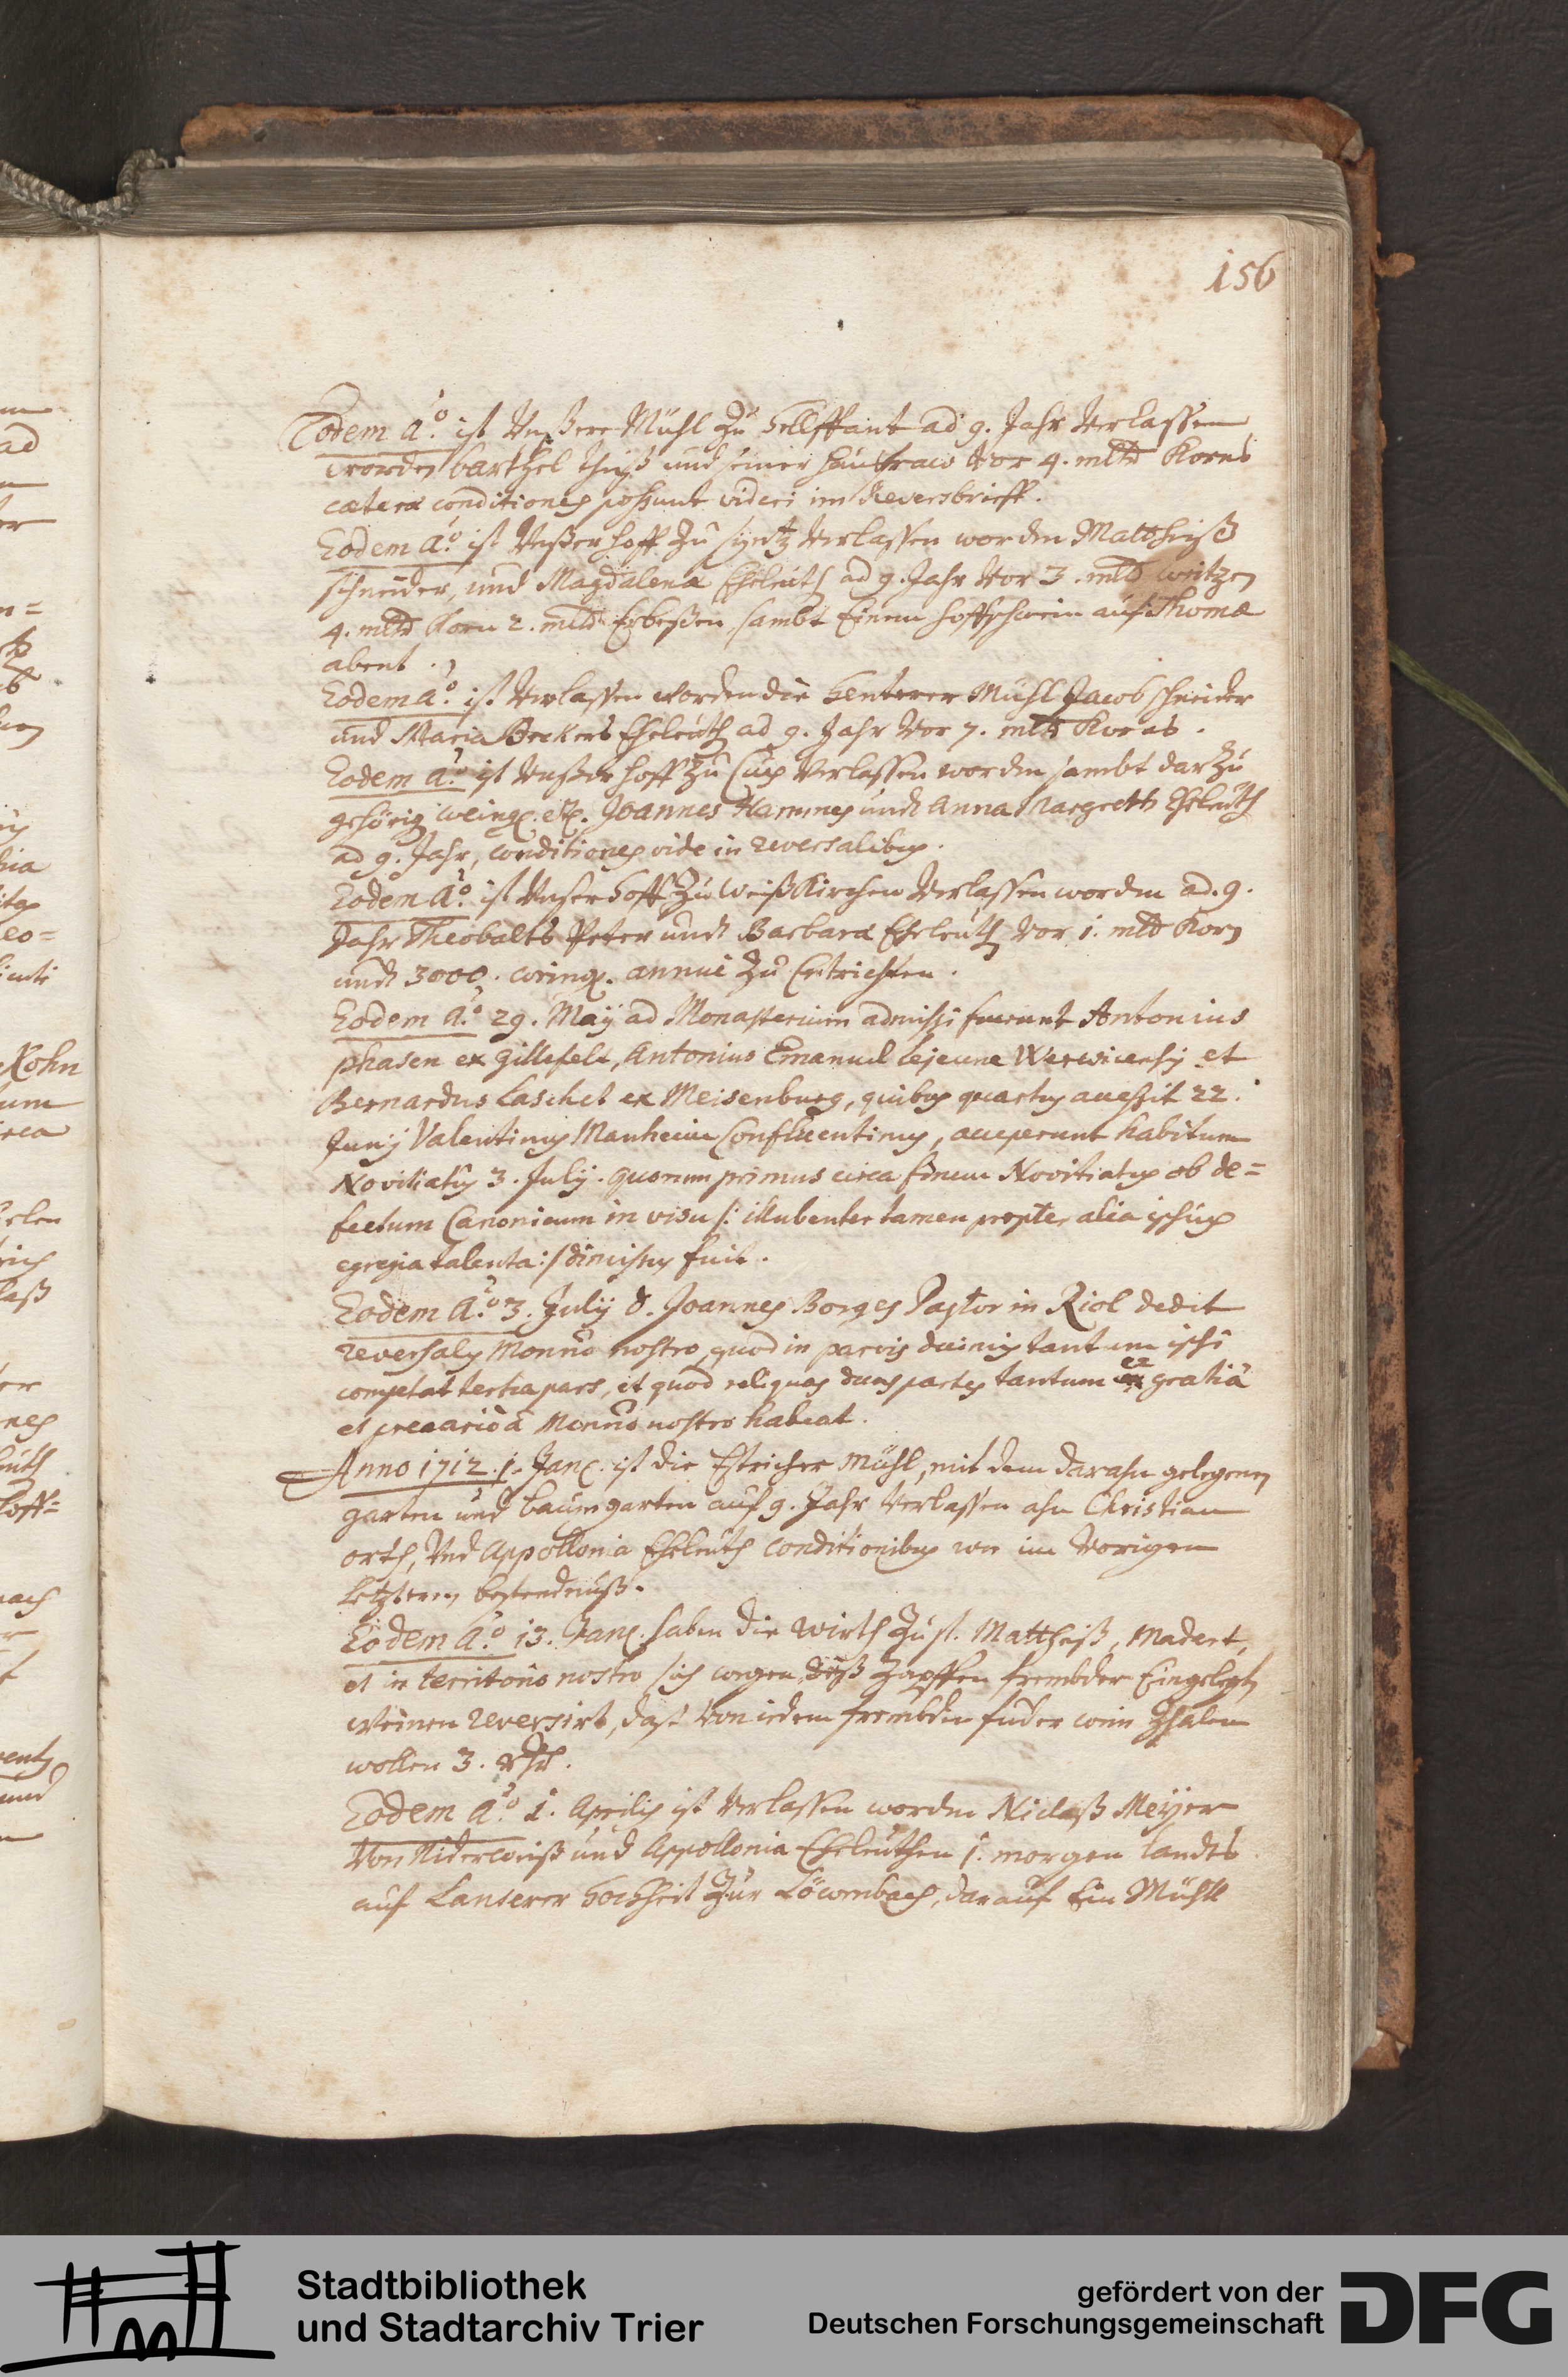 156
Eodem aō. ist Unßere Mühl zu Hellffant ad 9. Jahr Verlassen
worden barthel theiß und seiner haußfraw vor 4. mltr Korns
cætera conditiones possunt videri im Reversbrieff.
Eodem aō. ist Unßer hoff zu Syntz Verlassen worden Mattheiß
schneider, und Magdalena Eheleuth ad 9. Jahr vor 3. mltr weitzen
4. mltr Korn 2. mltr Erbeßen sambt Einem hoffschwein auf Thomæ
abent.
Eodem aō. ist Verlassen worden die Henterer Mühl Jacob schneider
und Maria Beckers Eheleuth ad 9. Jahr vor 7. mltr Korns.
Eodem aō. ist Unßer hoff zu Cüs Verlassen worden sambt darzu
gehörig weing. etc. Joannes Hammes undt Anna Margreth Eheleuth
ad 9. Jahr, conditiones vide in reversalibus.
Eodem aō. ist Unser Hoff zu Weißkirchen Verlassen worden ad. 9.
Jahr Theobalts Peter undt Barbara Eheleuth vor 1. mltr Korn
undt 3000. weing. annuè zu Entrichten.
Eodem aō. 29. Maÿ ad Monasterium admissi fuerunt Antonius
phasen ex gillefelt, Antonius Emanuel Lejeune Werwicensis et
Bernardus Laschet ex Meisenburg, quibus quartus accessit 22.
Junij Valentinus Manheim Confluentinus, acceperunt habitum
Novitiatus 3. Julij. quorum primus circa finem Novitiatus ob de=
fectum Canonicum in visu /: illubenter tamen propter alia ipsius
egregia talenta :/ dimissus fuit.
Eodem aō. 3. Julij d. Joannes Borges Pastor in Riol dedit
reversales Monrio nostro quod in parvis decimis tantum ipsi
competat tertia pars, et quod reliquas duas partes tantum ex gratiâ
et precario à Monrio nostro habeat.
Anno 1712. 1. Jan. ist die Estricher Mühl, mit dem darahn gelegenen
garten und baumgarten auf 9. Jahr Verlassen ahn Christian
orth, Und Appollonia Eheleuth conditionibus wie im Vorigen
letzteren bestendnuß.
Eodem aō. 13. Jan. haben die wirth zu st. Mattheiß, Madert,
et in territorio nostro sich wegen deß Zapffen frembder Eingelegten
Weinen reversirt, daß von iedem frembden fuder wein zahlen
wollen 3. Rthl.
Eodem aō. 1. Aprilis ist Verlassen worden Niclaß Meÿer
Von Niderweiß und Appollonia Eheleuthen 1. morgen landts
auf Lanterer Hochheit zur Löwenbach, darauf Ein Mühll
Stadtbibliothek
und Stadtarchiv Trier
gefördert von der
Deutschen Forschungsgemeinschaft
DFG